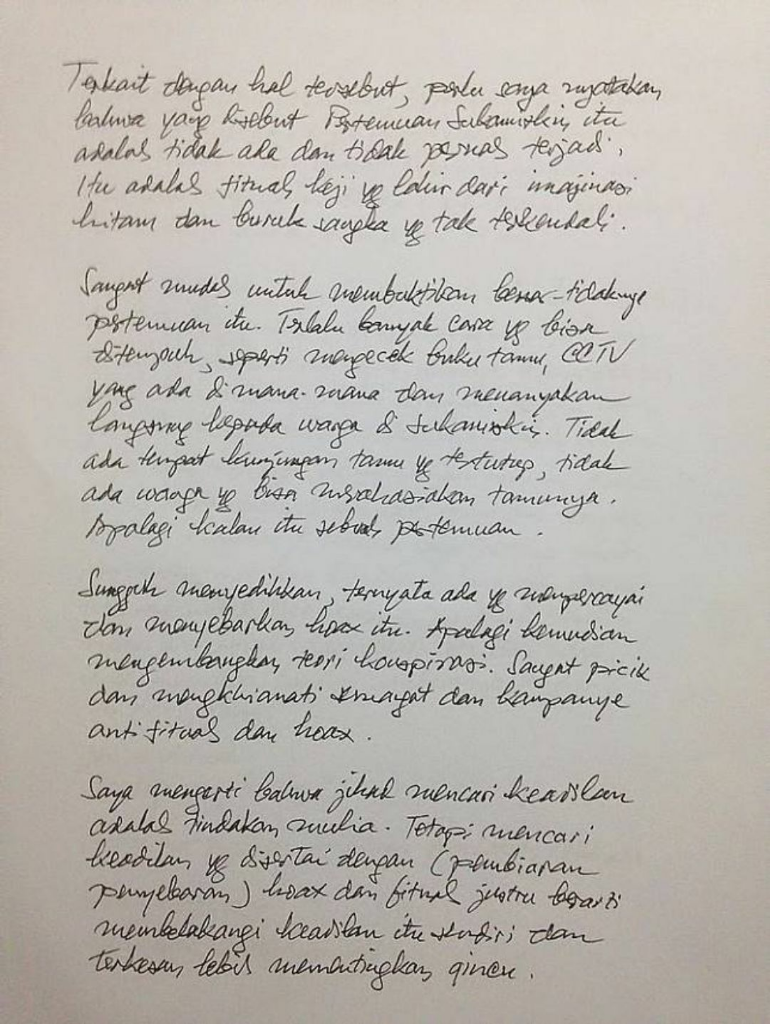 Terkait dengan hal tersebut, perlu saya nyatakan
bahwa yang disebut Pertemuan Sukamiskin itu
adalah tidak ada dan tidak pernah terjadi.
Itu adalah fitnah keji yg lahir dari imajinasi
hitam dan buruk sangka yg tak terkendali.
Sangat mudah untuk membuktikan benar-tidaknya
pertemuan itu. Terlalu banyak cara yg bisa
ditempuh, seperti mengecek buku tamu, CCTV
yang ada di mana-mana dan menanyakan
langsung kepada warga di Sukamiskin. Tidak
ada tempat kunjungan tamu yg tertutup, tidak
ada warga yg bisa merahasiakan tamunya.
Apalagi kalau itu sebuah pertemuan.
Sungguh menyedihkan, ternyata ada yg mempercayai
dan menyebarkan hoax itu. Apalagi kemudian
mengembangkan teori konspirasi. Sangat picik
dan mengkhianati semangat dan kampanye
anti fitnah dan hoax.
Saya mengerti bahwa jihad mencari keadilan
adalah tindakan mulia. Tetapi mencari
keadilan yg disertai dengan (pembiaran
penyebaran) hoax dan fitnah justru berarti
membelakangi keadilan itu sendiri dan
terkesan lebih mementingkan qincu.